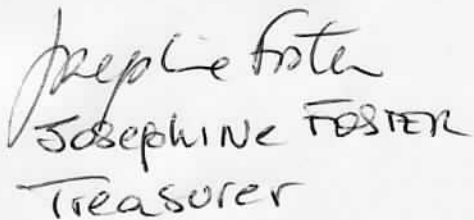 Josephine Foster
JOSEPHINE FOSTER
Treasurer